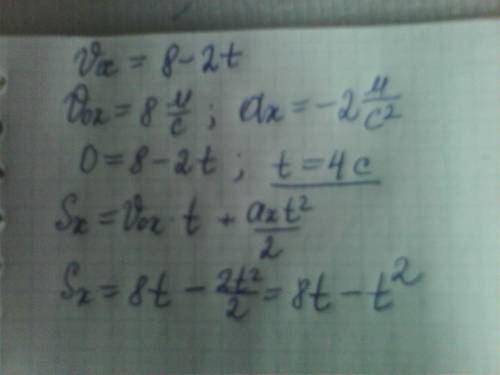 Vx = 8 - 2t
V₀x = 8 м/с ; ax = -2 м/с²
0 = 8 - 2t ; t = 4 с
Sx = V₀x · t + axt²/2
Sx = 8t - 2t²/2 = 8t - t²